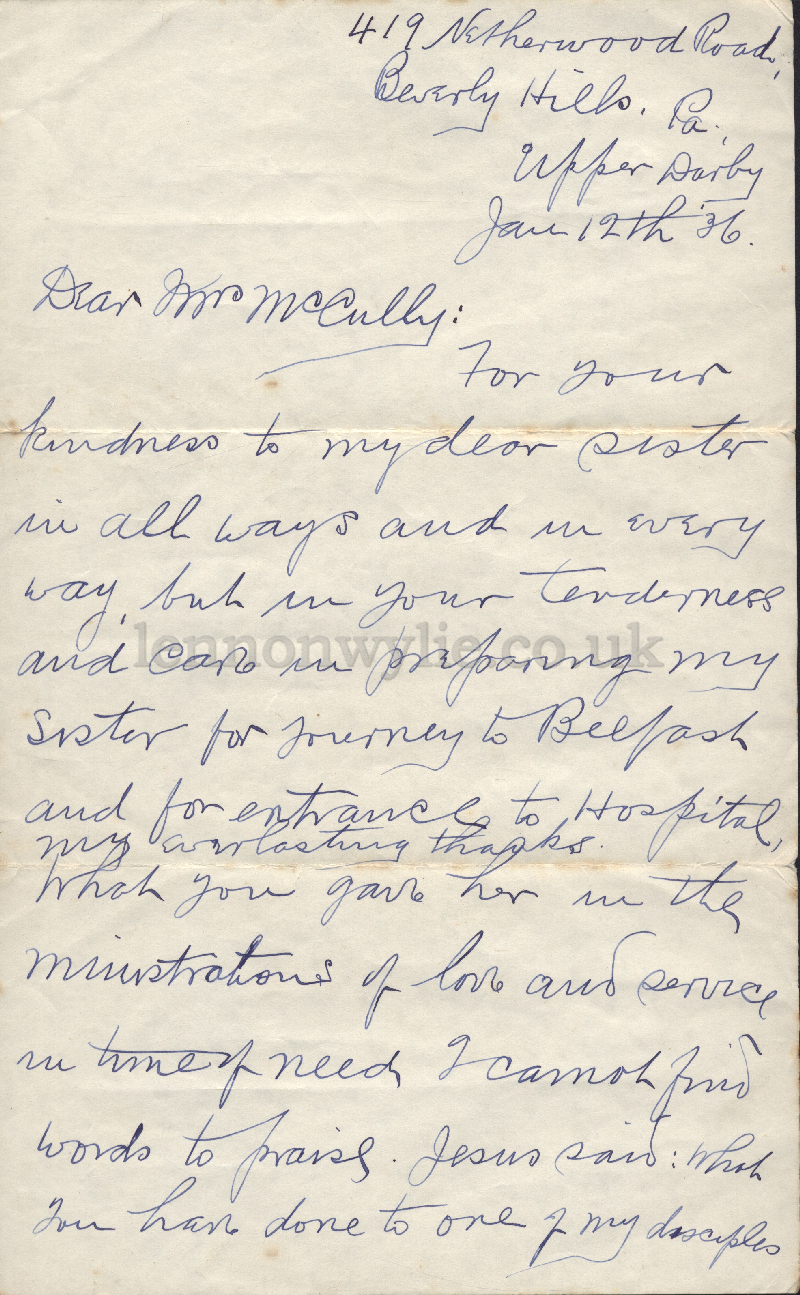 419 Netherwood Road,
Beverly Hills. Pa.,
Upper Darby
Jan 12th '36.
Dear Mrs McCully:
For your
kindness to my dear sister
in all ways and in every
way, but in your tenderness
and care in preparing my
lennonwylie.co.uk
sister for journey to Belfast
and for entrance to Hospital,
my everlasting thanks.
What you gave her in the
ministrations of love and service
in time of need I cannot find
words to praise. Jesus said: what
you have done to one of my disciples